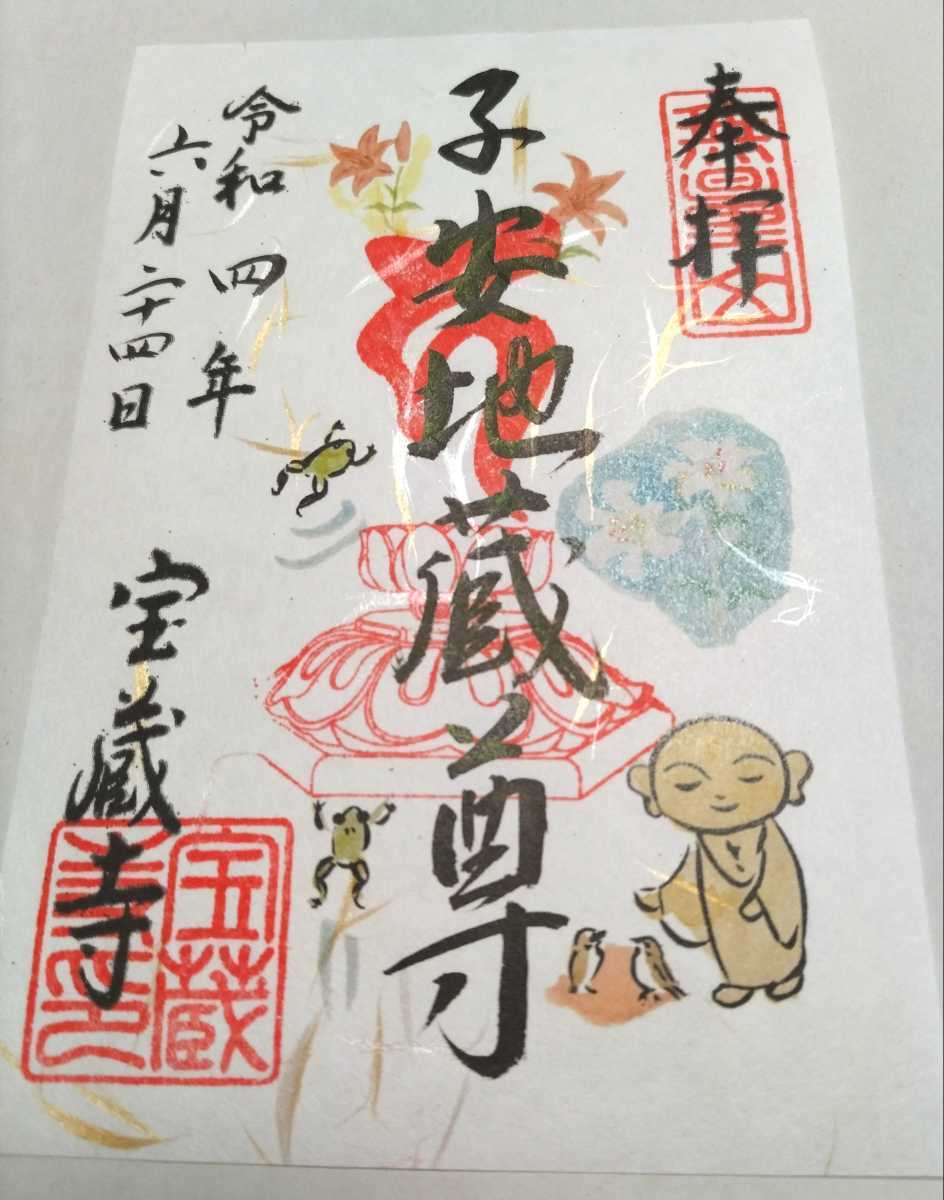 奉拝
子安地蔵尊
令和四年
六月二十四日
宝蔵寺
宝蔵
寺印